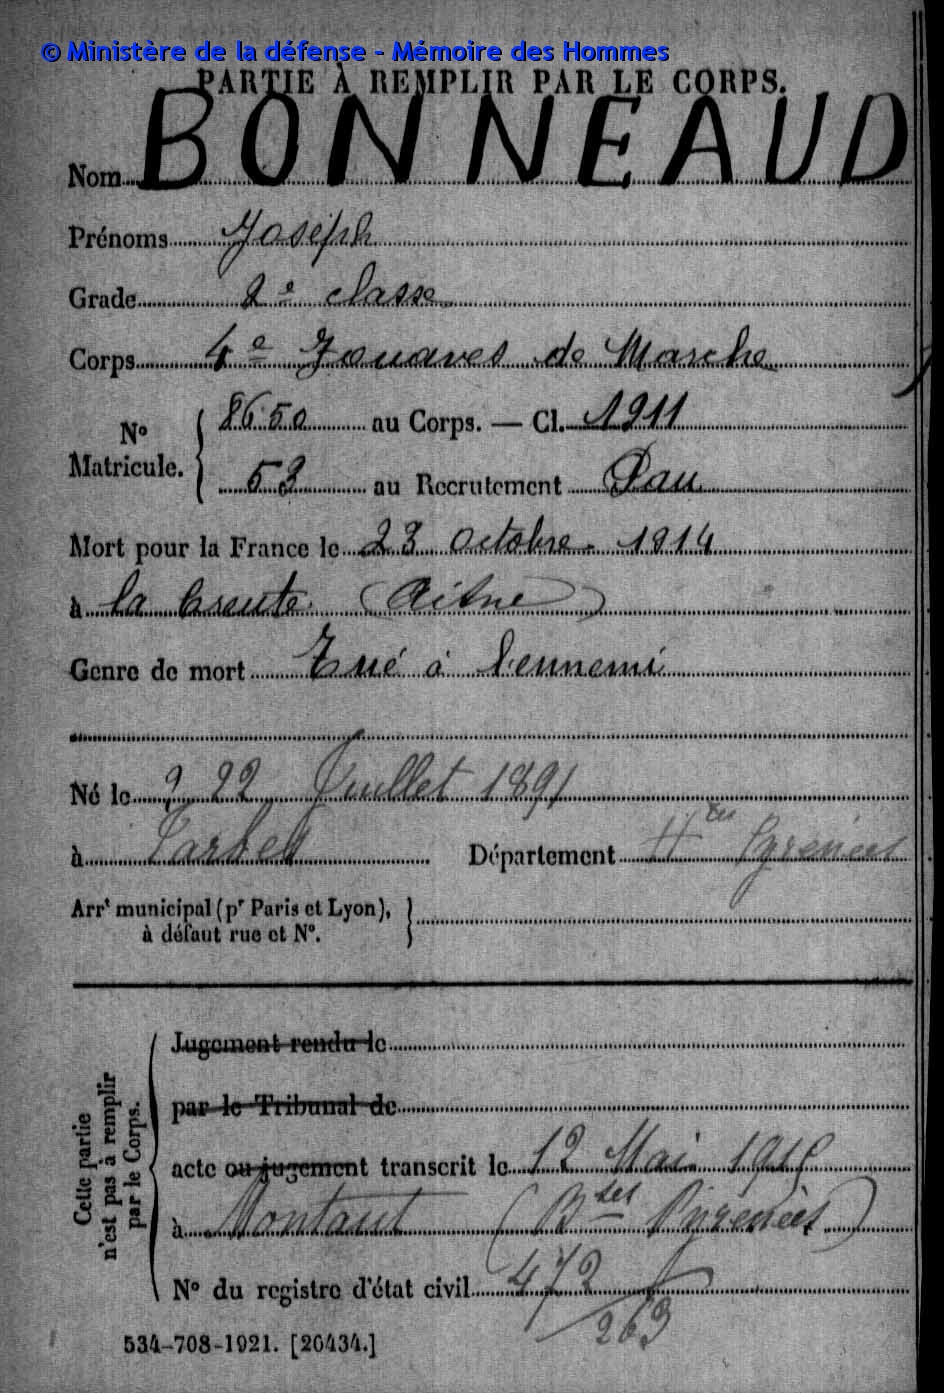 © Ministère de la défense - Mémoire des Hommes
PARTIE À REMPLIR PAR LE CORPS.
Nom BONNEAUD
Prénoms Joseph
Grade 2e classe
Corps 4e Zouaves de Marche
No Matricule. { 8650 au Corps. — Cl. 1911
53 au Recrutement Pau
Mort pour la France le 23 octobre 1914
à la Creute (Aisne)
Genre de mort Tué à l'ennemi
Né le 22 Juillet 1891
à Tarbes Département Htes Pyrénées
Arrt municipal (pr Paris et Lyon),
à défaut rue et No.
Cette partie
n'est pas à remplir
par le Corps.
Jugement rendu le
par le Tribunal de
acte ou jugement transcrit le 12 Mai 1915
à Montaut (Bses Pyrénées)
No du registre d'état civil 472
263
534-708-1921. [26434.]